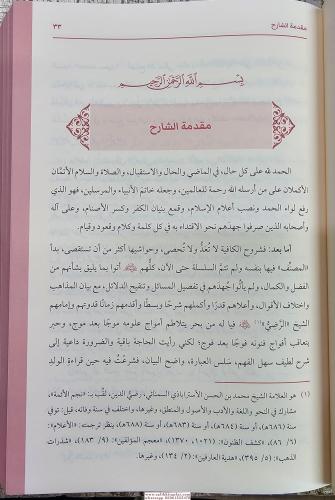 مقدمة الشارح
٣٣
بِسْمِ اللَّهِ الرَّحْمَنِ الرَّحِيمِ
مقدمة الشارح
الحمد لله على كل حال، في الماضي والحال والاستقبال، والصلاة والسلام الأتمَّان
الأكملان على من أرسله الله رحمة للعالمين، وجعله خاتمَ الأنبياء والمرسلين، فهو الذي
رفع لواء الحمد ونصب أعلام الإسلام، وقمع بنيان الكفر وكسر الأصنام، وعلى آله
وأصحابه الذين صرفوا جهدهم نحو الاقتداء به في كل كلمة وكلام وقعود وقيام.
أما بعد: فشروح الكافية لا تُعدُّ ولا تُحصى، وحواشيها أكثر من أن تستقصى، بدأ
«المصنِّف» فيها بنفسه ولم تتمَّ السلسلة حتى الآن، كلُّهم أتوا بما يليق بشأنهم من
الفضل والكمال، ولم يألُوا جُهدَهم في تفصيل المسائل وتنقيح الدلائل، مع بيان المذاهب
واختلاف الأقوال، وأعلاهم قدرًا وأكملهم شرحًا وبسطًا وأقدمهم زمانًا قدوتهم وإمامهم
الشيخ «الرَّضيُّ»(١) فيا له من بحر يتلاطم أمواج علومه موجًا بعد موج، وحبر
يتعاقب أفواج فنونه فوجًا بعد فوج؛ لكني رأيت الحاجة باقية والضرورة داعية إلى
شرح لطيف سهل الفهم، سلس العبارة، واضح البيان، فشرعْتُ فيه حين قراءة الولدِ
(١) هو العلامة الشيخ محمد بن الحسن الأستراباذي السمنائي، رضيّ الدين، لقِّب بـ: «نجم الأئمة»،
مشارك في النحو واللغة والأدب والأصول والمنطق، وغيرها، واختلف في سنة وفاته، قيل: توفي
سنة (٦٨٦هـ)، أو سنة (٦٨٤هـ)، أو سنة (٦٨٨هـ)، وغيرها، ينظر ترجمته: «الأعلام»:
(٦/ ٨٦)، «كشف الظنون»: (١٠٢١، ١٣٧٠)، «معجم المؤلفين»: (٩/ ١٨٣)، «شذرات
الذهب»: (٥/ ٣٩٥)، «هدية العارفين»: (٢/ ١٣٤)، وغيرها.